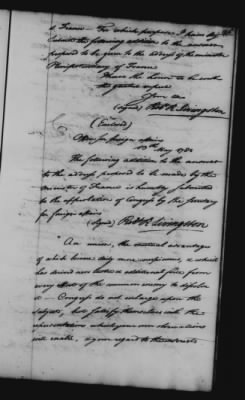 of France — For which purpose I pray
submit the following addition to the answer
proposed to be given to the address of the minister
Plenipotentiary of France
I have the honor to be with
the greatest respect
(Signed) Robt R. Livingston
(Enclosed)
Office for foreign affairs
May 1782
The following addition to the answer
to the address proposed to be made by the
Minister of France is humbly submitted
to the approbation of Congress by the Secretary
for foreign affairs
(Signed) Robt R. Livingston
"An union, the mutual advantages
of which become daily more conspicuous, & which
has derived new lustre & additional force from
every effort of the common enemy to dissolve
it — Congress do not enlarge upon this
subject, but satisfy themselves with the
representation which your own observations
will enable, & your regard to the interests